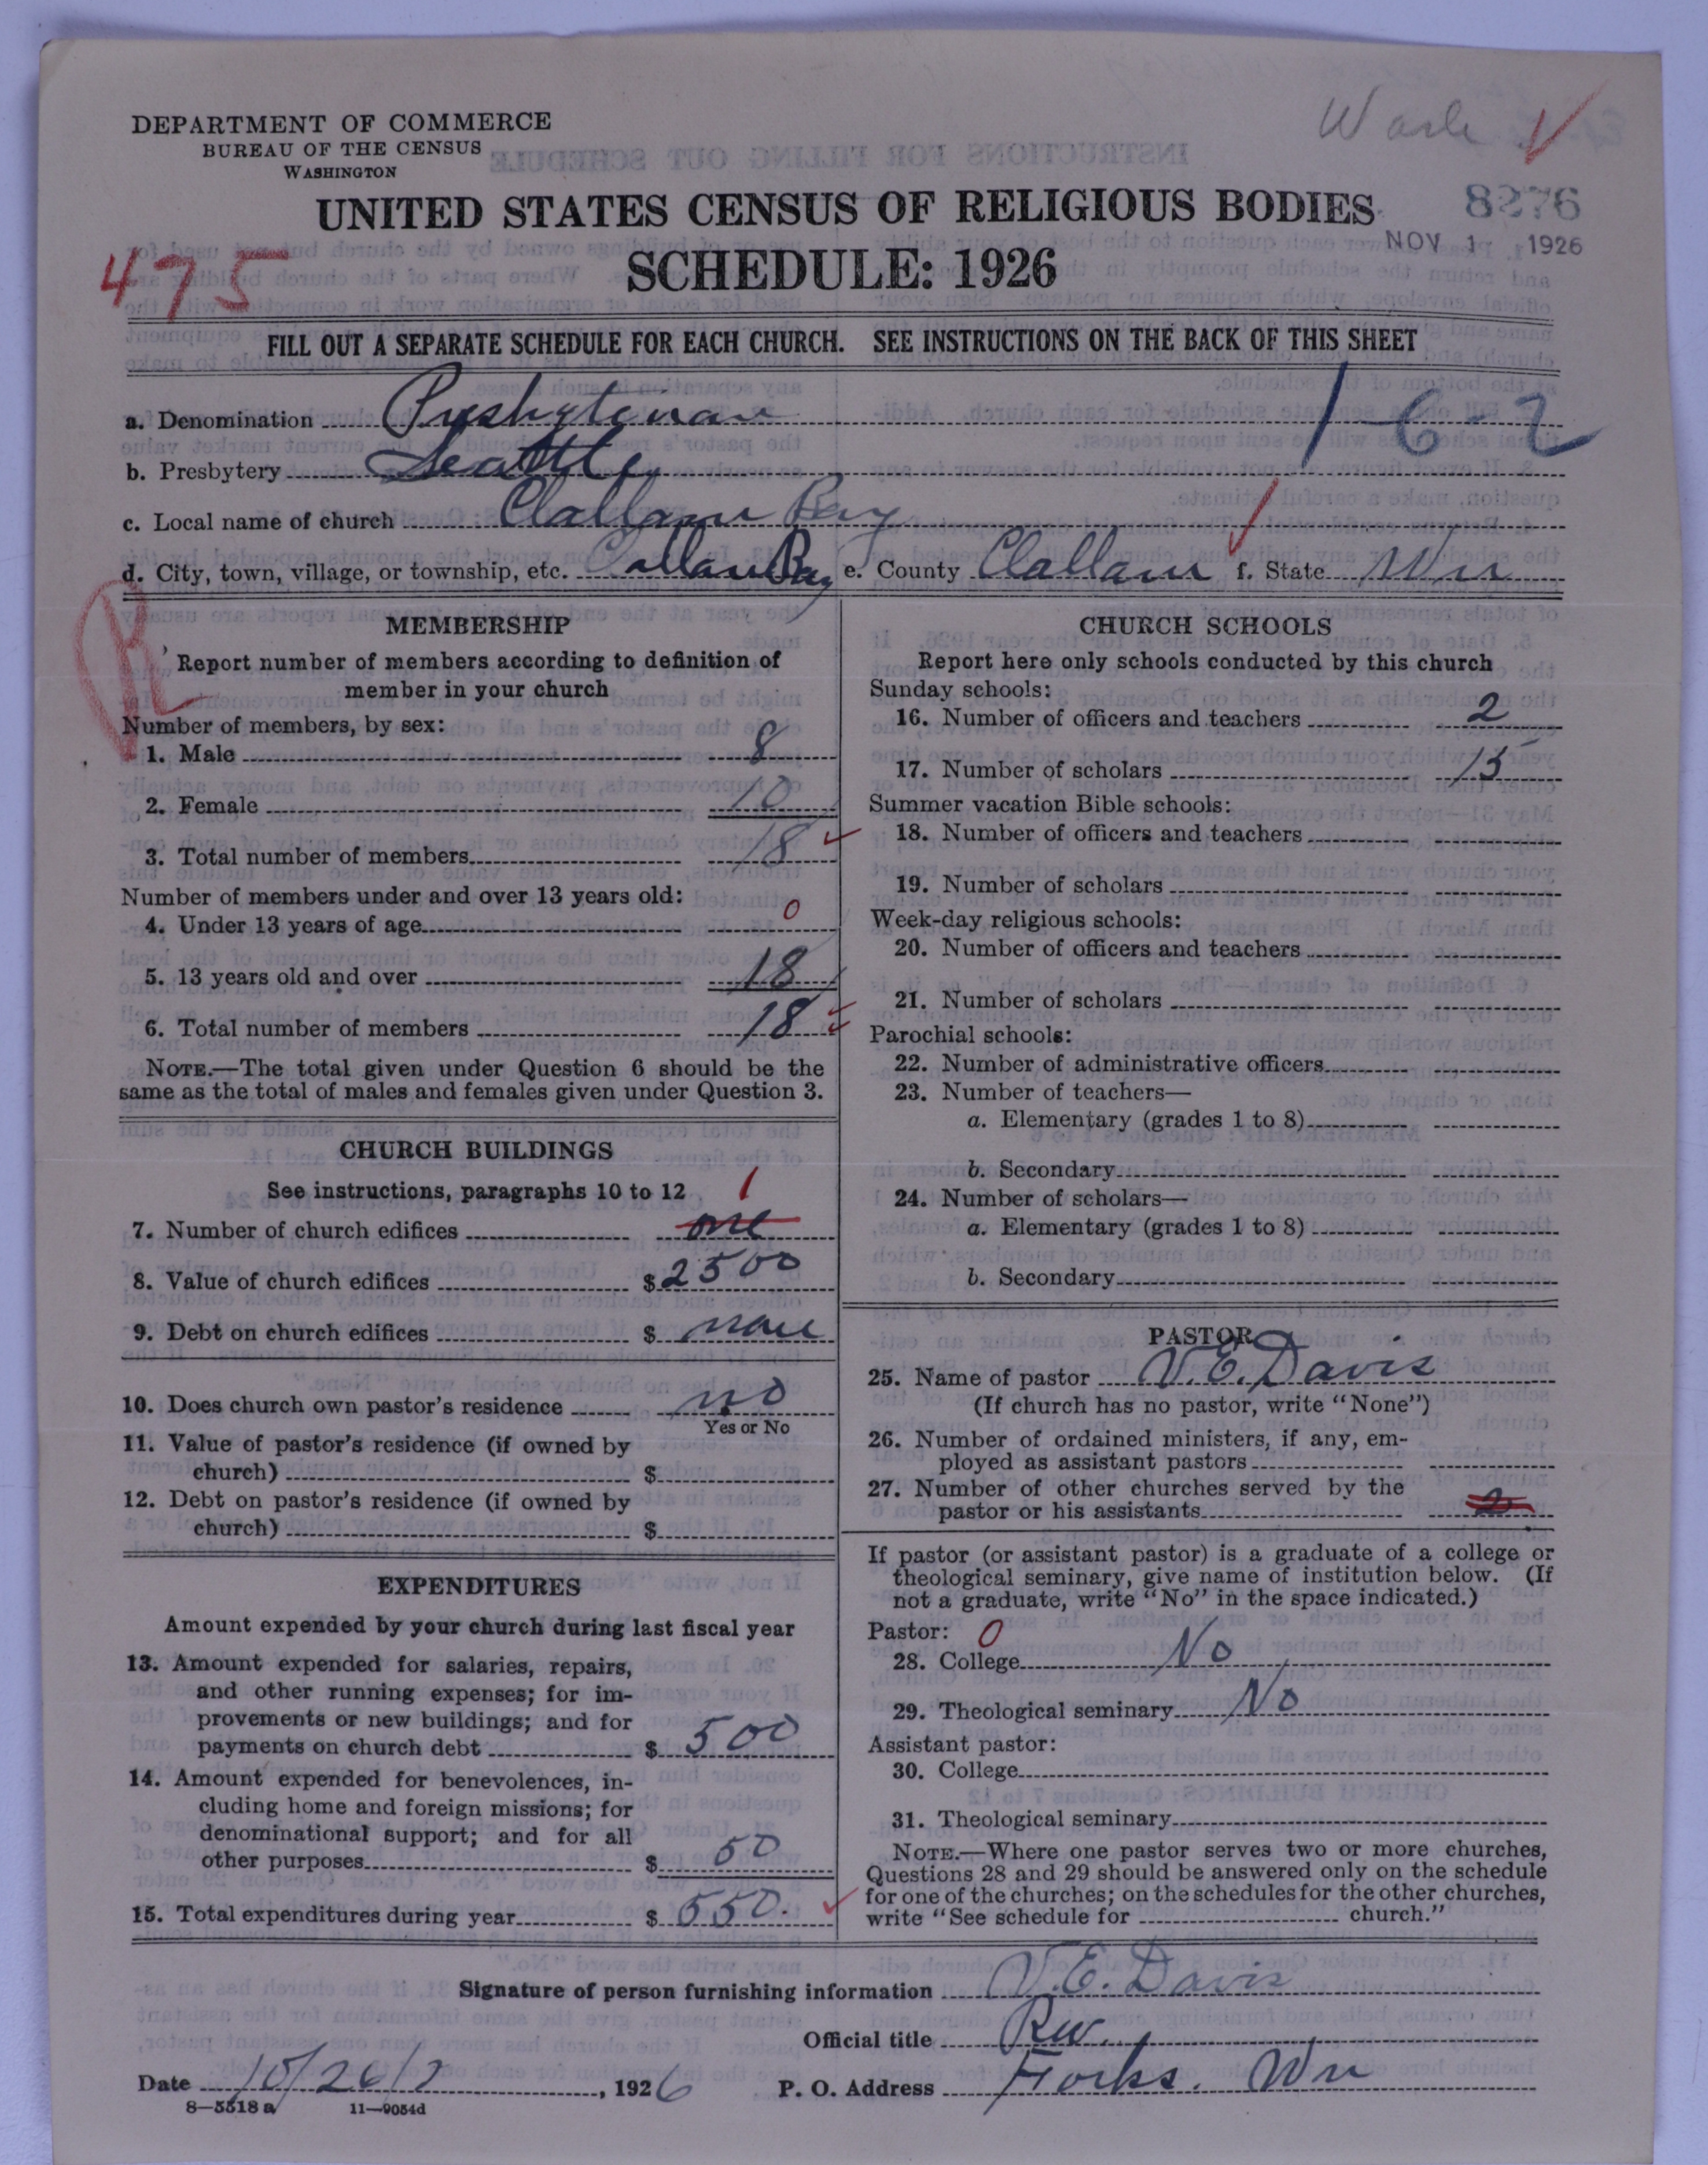 Wash
DEPARTMENT OF COMMERCE
BUREAU OF THE CENSUS
WASHINGTON
UNITED STATES CENSUS OF RELIGIOUS BODIES
8276
NOV 1 1926
SCHEDULE: 1926
475
FILL OUT A SEPARATE SCHEDULE FOR EACH CHURCH. SEE INSTRUCTIONS ON THE BACK OF THIS SHEET
1-6-2
a. Denomination Presbyterian
b. Presbytery Seattle
c. Local name of church Clallam Bay
d. City, town, village, or township, etc. Clallam Bay e. County Clallam f. State Wn
MEMBERSHIP
Report number of members according to definition of
member in your church
Number of members, by sex:
1. Male 8
2. Female 10
3. Total number of members 18
Number of members under and over 13 years old:
4. Under 13 years of age 0
5. 13 years old and over 18
6. Total number of members 18
NOTE.—The total given under Question 6 should be the
same as the total of males and females given under Question 3.
CHURCH BUILDINGS
See instructions, paragraphs 10 to 12
1
7. Number of church edifices one
8. Value of church edifices $2500
9. Debt on church edifices $ none
10. Does church own pastor's residence no
Yes or No
11. Value of pastor's residence (if owned by
church) $
12. Debt on pastor's residence (if owned by
church) $
EXPENDITURES
Amount expended by your church during last fiscal year
13. Amount expended for salaries, repairs,
and other running expenses; for im-
provements or new buildings; and for
payments on church debt $ 500
14. Amount expended for benevolences, in-
cluding home and foreign missions; for
denominational support; and for all
other purposes $ 50
15. Total expenditures during year $ 550.
CHURCH SCHOOLS
Report here only schools conducted by this church
Sunday schools:
16. Number of officers and teachers 2
17. Number of scholars 15
Summer vacation Bible schools:
18. Number of officers and teachers
19. Number of scholars
Week-day religious schools:
20. Number of officers and teachers
21. Number of scholars
Parochial schools:
22. Number of administrative officers
23. Number of teachers—
a. Elementary (grades 1 to 8)
b. Secondary
24. Number of scholars—
a. Elementary (grades 1 to 8)
b. Secondary
PASTOR
25. Name of pastor V. E. Davis
(If church has no pastor, write "None")
26. Number of ordained ministers, if any, em-
ployed as assistant pastors
27. Number of other churches served by the
pastor or his assistants 2
If pastor (or assistant pastor) is a graduate of a college or
theological seminary, give name of institution below. (If
not a graduate, write "No" in the space indicated.)
Pastor: 0
28. College No
29. Theological seminary No
Assistant pastor:
30. College
31. Theological seminary
NOTE.—Where one pastor serves two or more churches,
Questions 28 and 29 should be answered only on the schedule
for one of the churches; on the schedules for the other churches,
write "See schedule for church."
Signature of person furnishing information V. E. Davis
Official title Rev.
Date 10/26/ , 1926 P. O. Address Forks. Wn
8—5518 a 11—9054d